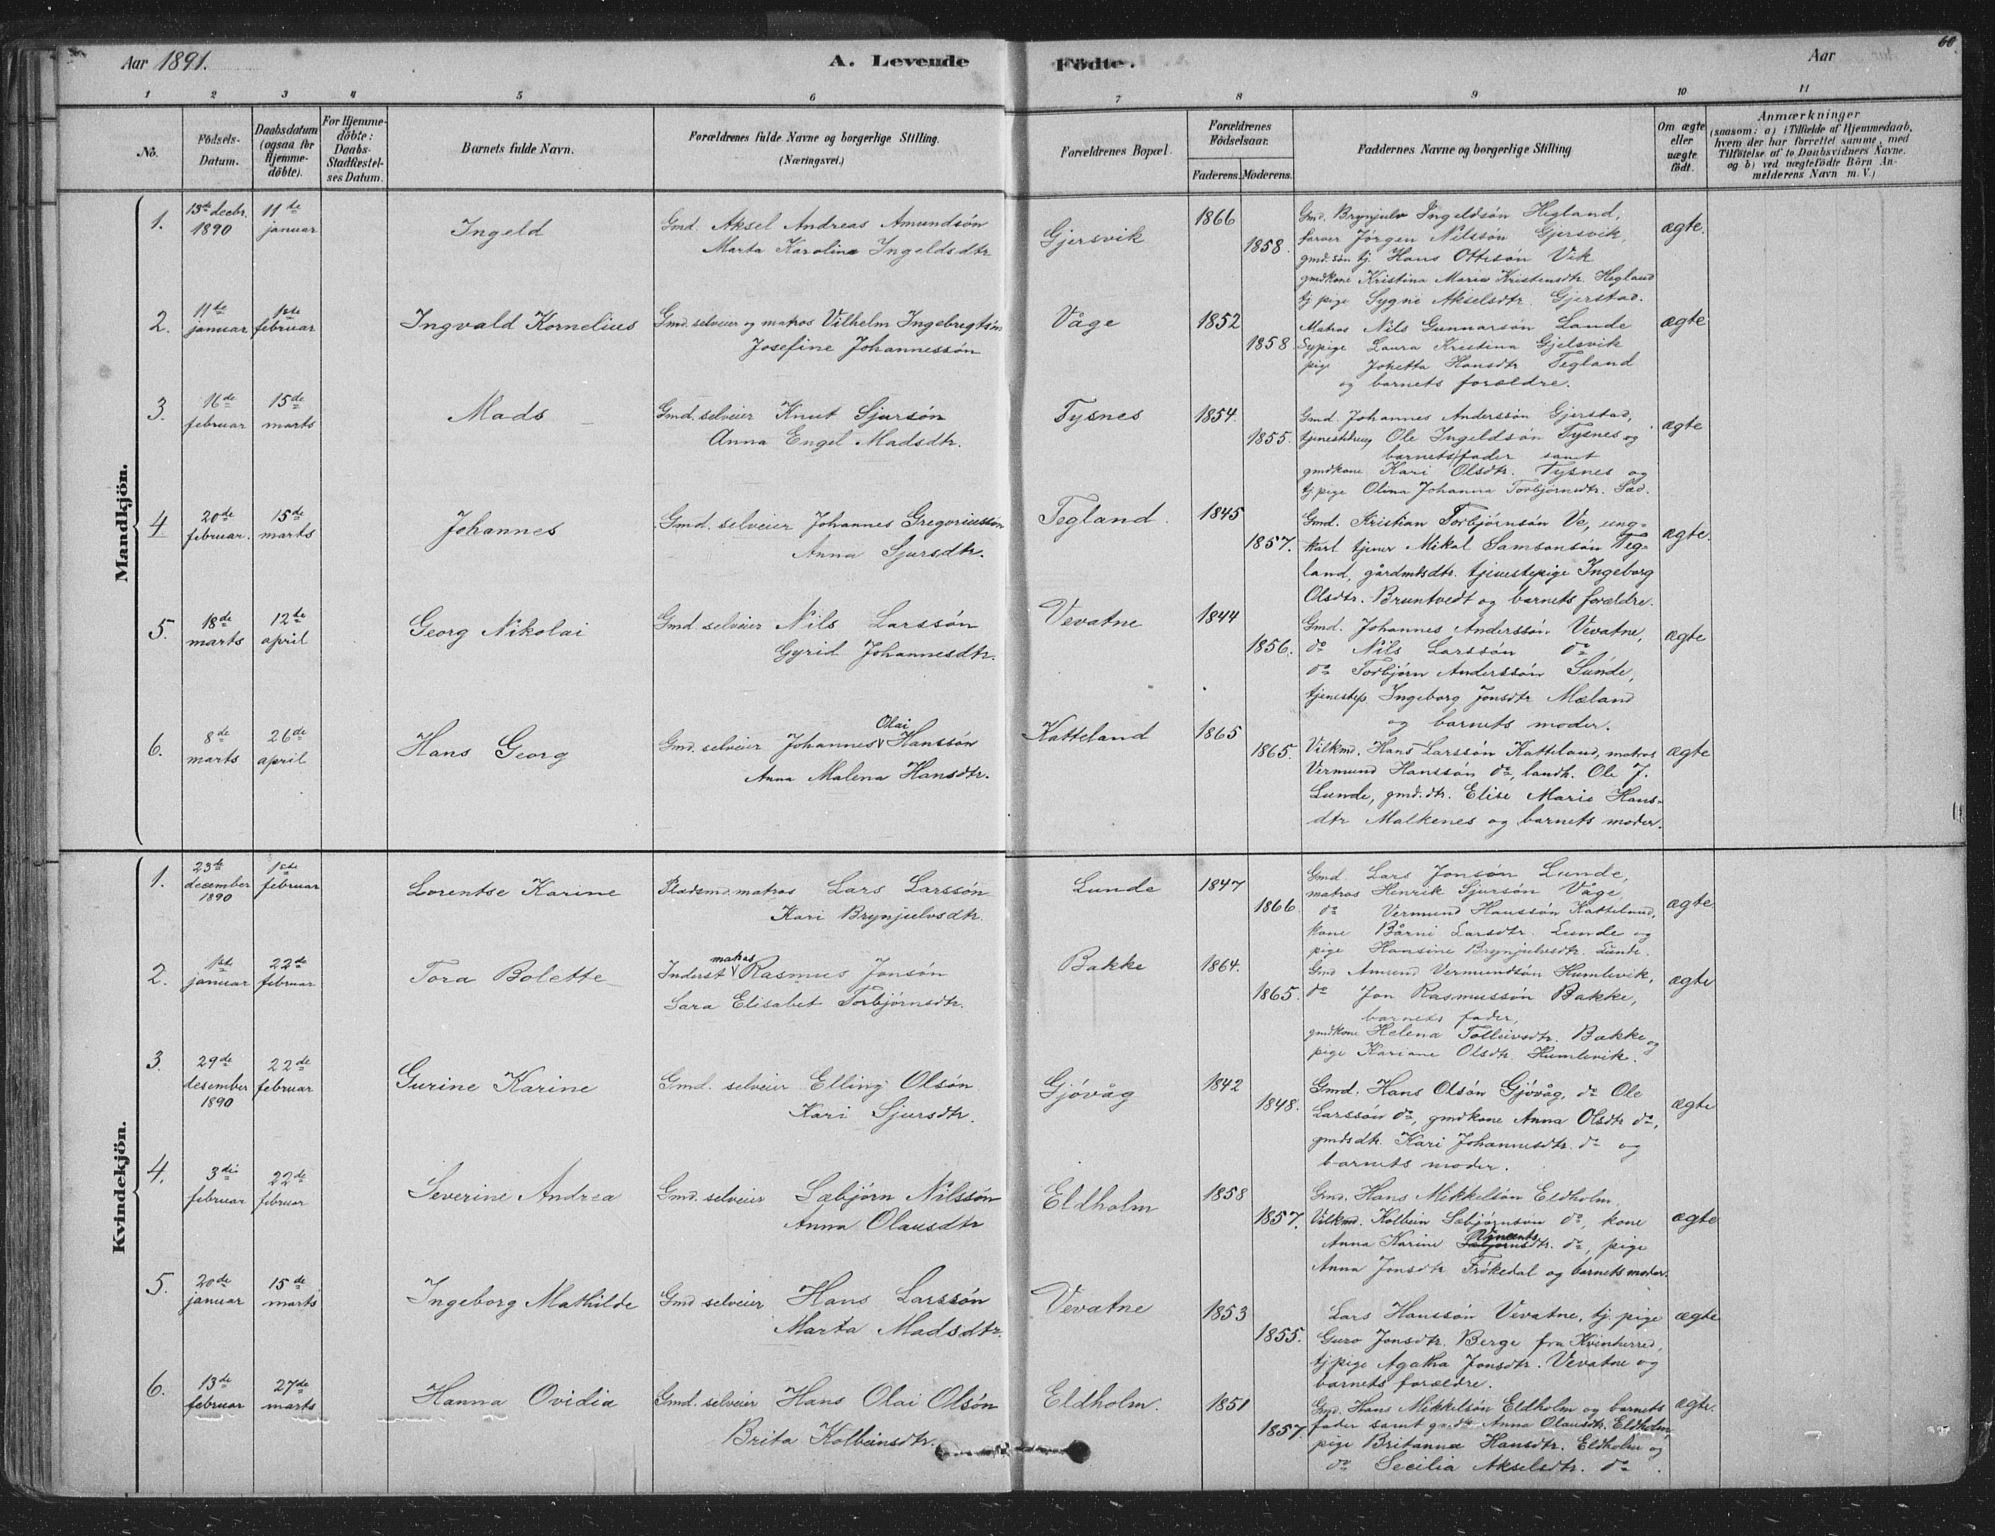 Aar 1891. A. Levende Fødte. Aar 60
1 2 3 4 5 6 7 8 9 10 11
No. Fødsels-Datum. Daabsdatum (ogsaa for Hjemme-døbte). For Hjemme-døbte: Daabs-Stadfæstel-ses Datum. Barnets fulde Navn. Forældrenes fulde Navne og borgerlige Stilling. (Næringsvei.) Forældrenes Bopæl. Forældrenes Fødselsaar. Faderens. Moderens. Faddernes Navne og borgerlige Stilling Om ægte eller uægte født. Anmærkninger (saasom: a) i Tilfælde af Hjemmedaab, hvem der har forrettet samme, med Tilføielse af to Daabsvidners Navne. og b) ved uægtefødte Børn An-melderens Navn m. V.)
Mandkjøn.
1. 13de decbr. 1890 11de januar Ingeld Gmd. Aksel Andreas Amundsøn Gjersvik 1866 Gmd. Brynjulv Ingeldsøn Hegland, ægte.
Marta Karolina Ingeldsdtr 1858. farver Jørgen Nilssøn Gjersvik,
gmd. søn tj. Hans Ottesøn Vik
gmdkone Kristina Marie Kristensdtr. Hegland
tj. pige Sygni Akselsdtr. Gjerstad.
2. 11te januar 1ste februar Ingvald Kornelius Gmd. selveier og matros Vilhelm Ingebregtsøn Våge 1852 Matros Nils Gunnarsøn Lunde ægte
Josefine Johannessøn 1858 Sypige Laura Kristina Gjelsvik
pige Johetta Hansdtr Tegland
og barnets forældre.
3. 16de februar 15de marts Mads Gmd. selveier Knut Sjursøn Tysnes 1854. Gmd. Johannes Anderssøn Gjerstad, ægte
Anna Engel Madsdtr. 1855. tjenestdreng Ole Ingeldsøn Tysnes og
barnets fader samt
gmdkone Kari Olsdtr. Tysnes og
tj. pige Olina Johanna Torbjørnsdtr.
4 20de februar. 15de marts Johannes Gmd. selveier Johannes Gregoriussøn Tegland. 1845 Gmd. Kristian Torbjørnsøn Ve, ung= ægte.
Anna Sjursdtr. 1857. karl tjener Mikal Samsonsøn Teg=
land, gårdmdsdtr. tjenestepige Ingeborg
Olsdtr. Bruntvedt og barnets forældre.
5. 18de marts 12te april Georg Nikolai Gmd. selveier Nils Larssøn Vevatne 1844 Gmd. Johannes Anderssøn Vevatne, ægte
Gyrid Johannesdtr. 1856. do Nils Larssøn do
do Torbjørn Anderssøn Sunde,
tjenestep. Ingeborg Jonsdtr Mæland
og barnets moder.
6. 8de marts 26de april Hans Georg Gmd. selveier Johannes Olai Hanssøn Katteland 1865
Anna Malena Hansdtr. 1865. Vilkmd. Hans Larssøn Katteland, matros ægte
Vermund Hanssøn do, landh. Ole J.
Lunde, gmd. dtr. Elise Marie Hans-
dtr Malkenes og barnets moder.
Kvindekjøn.
1. 23de december 1890 1ste februar Lorentse Karine Pladsmd. matros Lars Larssøn Lunde 1847 Gmd. Lars Jonsøn Lunde,
Kari Brynjulvsdtr. 1866 matros Henrik Sjursøn Våge, ægte.
do Vermund Hanssøn Katteland,
kone Bårni Larsdtr. Lunde og
pige Hansine Brynjulvsdtr. Lunde.
2. 1ste januar 22de februar Tora Bolette Inderst matros Rasmus Jonsøn Bakke 1864. Gmd Amund Vermundsøn Humlevik, ægte
Sara Elisabet Torbjørnsdtr. 1865. do Jon Rasmussøn Bakke,
barnets fader,
gmdkone Helena Tolleivsdtr. Bakke og
pige Kariane Olsdtr. Humlevik.
3. 29de desember 1890 22de februar Gurine Karine Gmd. selveier Elling Olsøn Gjøvåg 1842 Gmd. Hans Olsøn Gjøvåg, do Ole
Kari Sjursdtr. 1848. Larssøn do, gmdkone Anna Olsdtr do, ægte
gmdsdtr. Kari Johannesdtr. do og
barnets moder.
4. 3die februar 22de februar Severine Andrea Gmd. selveier Sæbjørn Nilssøn Eldholm 1858 Gmd. Hans Mikkelsøn Eldholm,
Anna Olausdtr 1857. Vilkmd. Kolbein Sæbjørnsøn do, kone ægte
Anna Karine Sæbjørnsdtr. do, pige
Anna Jonsdtr Trøkedal og barnets moder.
5. 20de januar 15de marts Ingeborg Mathilde Gmd selveier Hans Larssøn Vevatne 1853 Lars Hanssøn Vevatne, tj. pige ægte
Marta Madsdtr. 1855. Guro Jonsdtr. Berge fra Kvinherred,
tj pige Agatha Jonsdtr. Vevatne og
barnets forældre.
6. 13de februar 27de marts Hanna Ovidia Gmd. selveier Hans Olai Olsøn Eldholm. 1851 Gmd. Hans Mikkelsøn Eldholm og barnets ægte.
Brita Kolbeinsdtr. 1857. fader samt Anna Olausdtr. Eldholm
pige Britanna Hansdtr. Eldholm og
do Secilia Akselsdtr. do